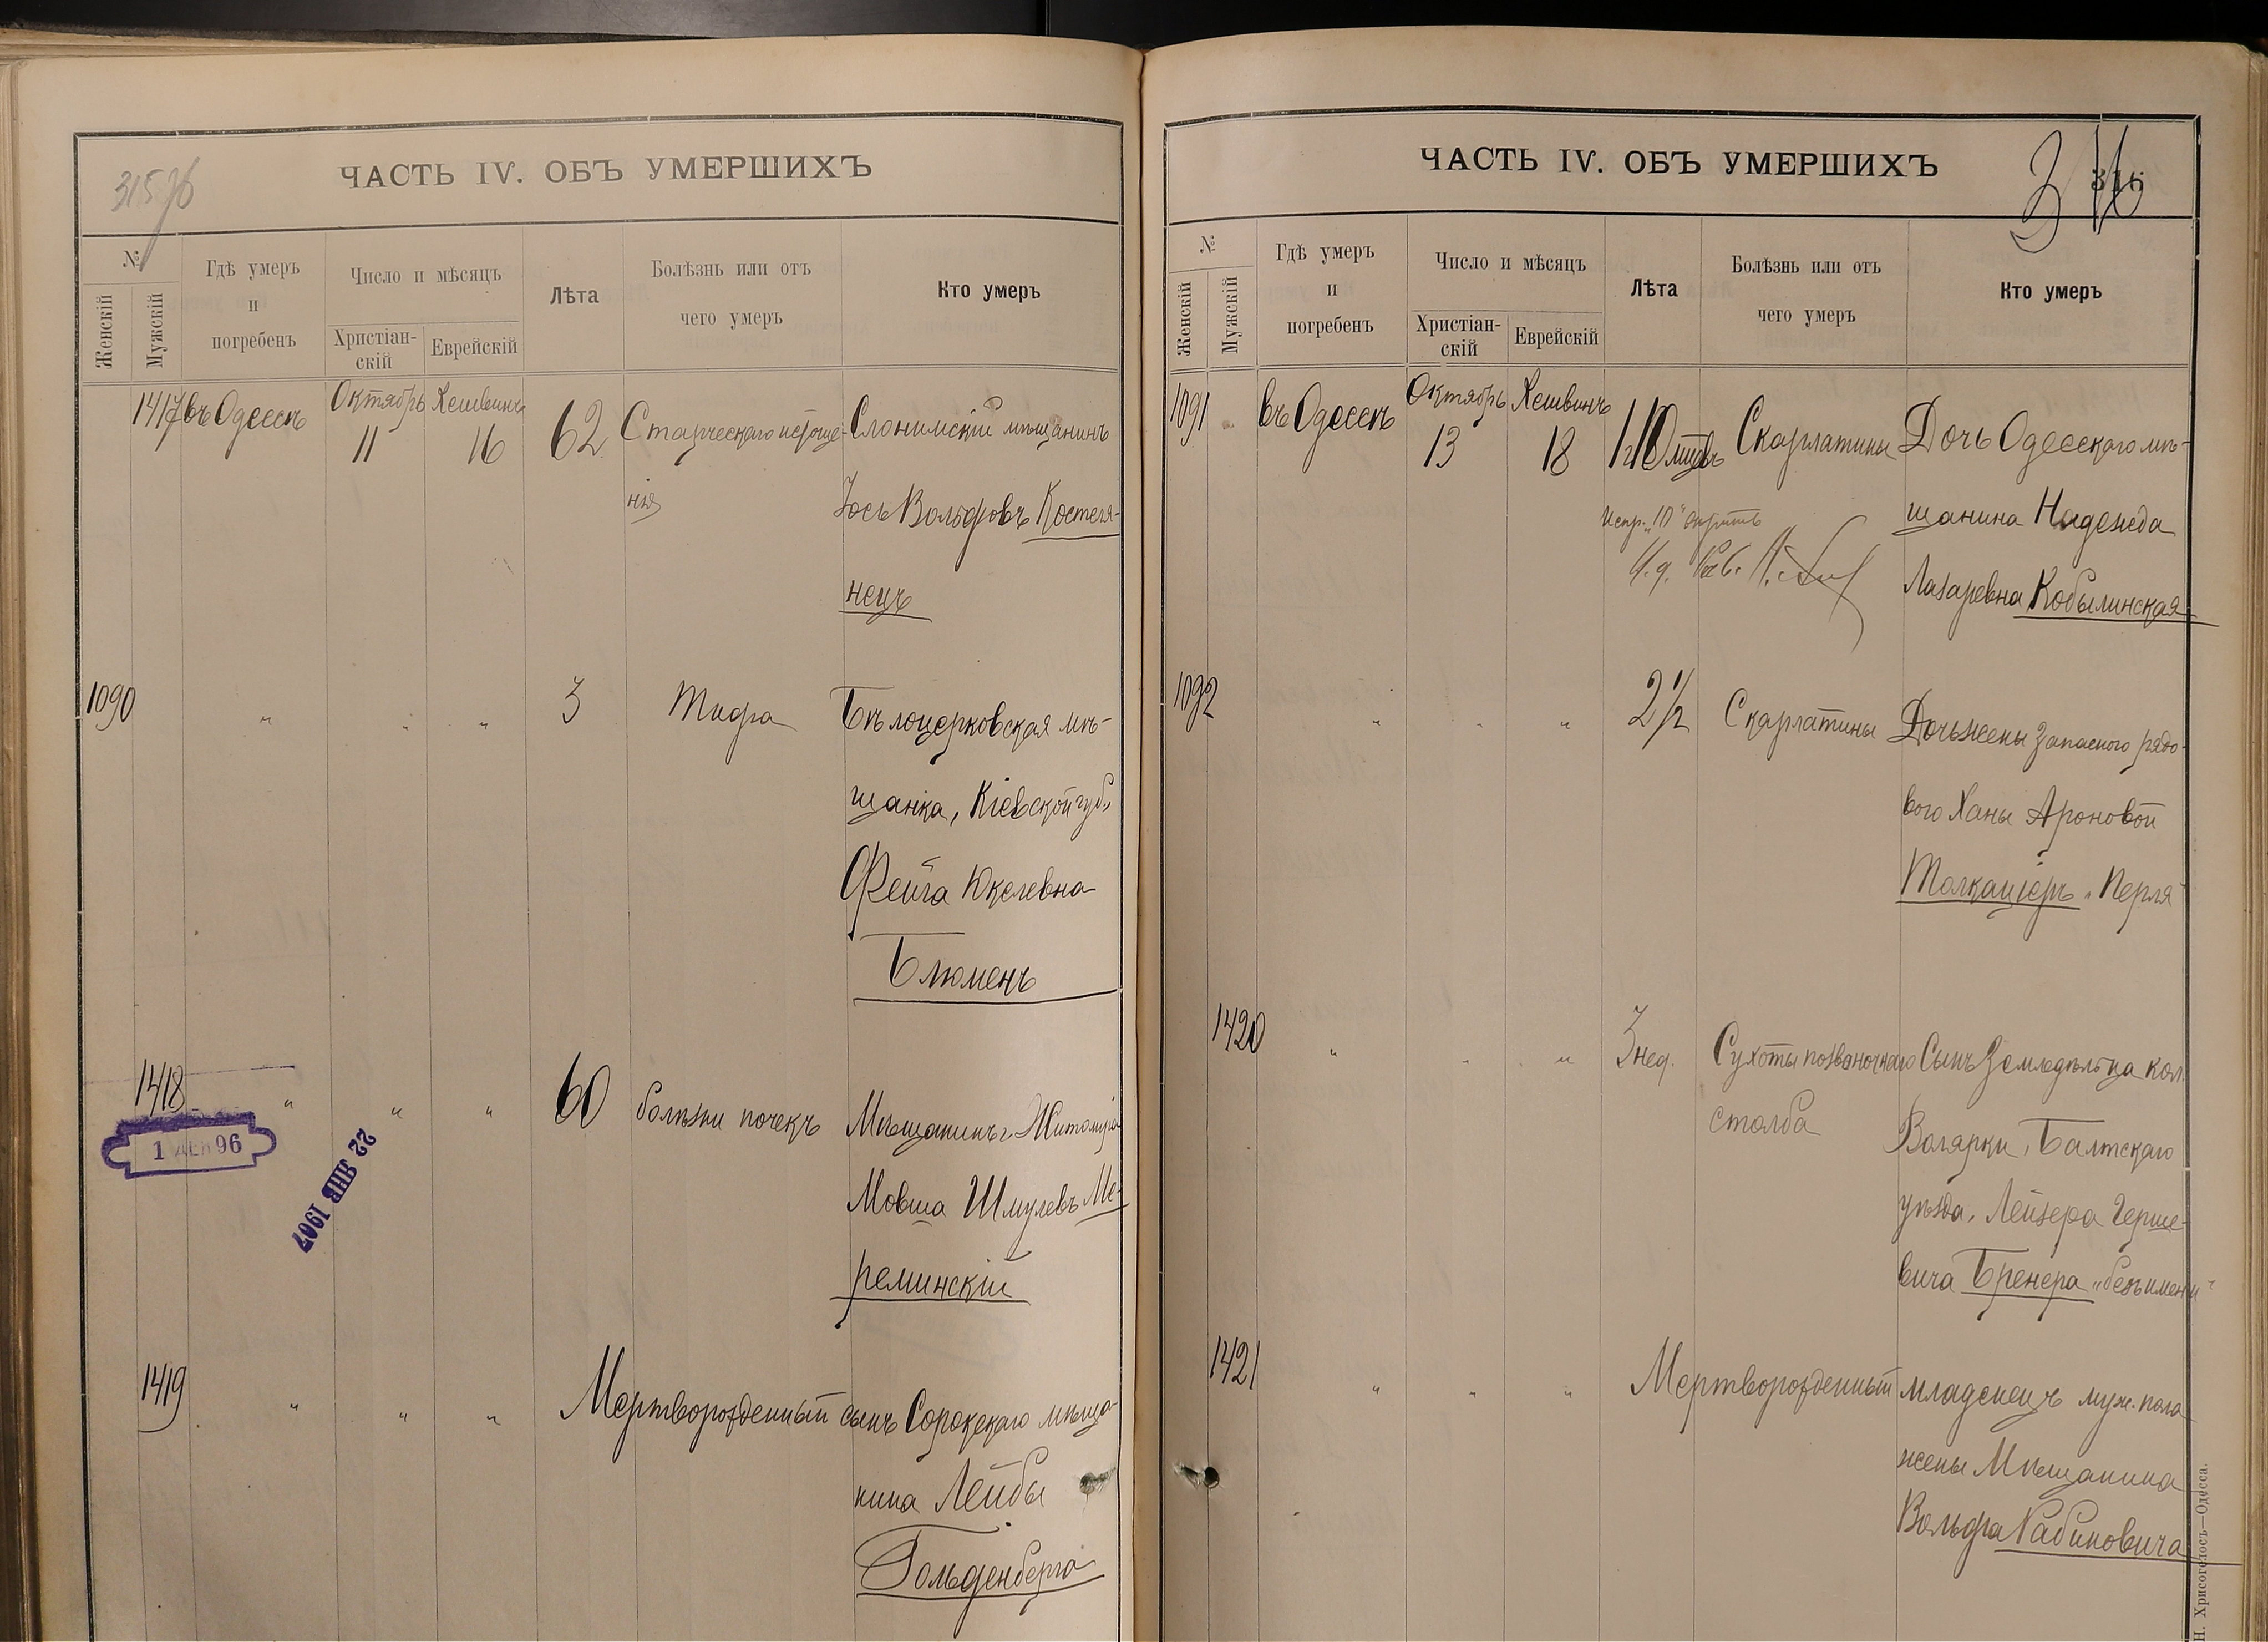 ЧАСТЬ IV. ОБЪ УМЕРШИХЪ
№
Женскій
Мужскій
Гдѣ умеръ
и
погребенъ
Число и мѣсяцъ
Христіан-
скій
Еврейскій
Лѣта
Болѣзнь или отъ
чего умеръ
Кто умеръ
1417 въ Одессѣ Октябрь 11 Хешвинъ 16 62 Старческаго истоще- Слонимскій мѣщанинъ
нія Іось Вольфовъ Костеля-
нецъ
1090 " " " 3 Тифа Бѣлоцерковская мѣ-
щанка, Кіевской губ.,
Фейга Юкелевна
Блюменъ
1418 " " " 60 болѣзни почекъ Мѣщанинъ г. Житоміра
1 ДЕК 96
22 ЯНВ 1907
Мовша Шмулевъ Ме-
реминскій
1419 " " " Мертворожденный сынъ Сорокскаго мѣща-
нина Лейбы
Гольденберга
ЧАСТЬ IV. ОБЪ УМЕРШИХЪ
316
№
Женскій
Мужскій
Гдѣ умеръ
и
погребенъ
Число и мѣсяцъ
Христіан-
скій
Еврейскій
Лѣта
Болѣзнь или отъ
чего умеръ
Кто умеръ
1091 въ Одессѣ Октябрь 13 Хешвинъ 18 1 г. 10 мцвъ Скарлатины Дочь Одесскаго мѣ-
щанина Надежда
Испр. "10"
И. д. Рав.
Лазаревна Кобылинская
1092 " " " 2 1/2 Скарлатины Дочь жены запаснаго рядо-
вого Ханы Ароновой
Толкацiеръ "Перля"
1420 " " " 3 нед. Сухоты позвоночнаго Сынъ земледѣльца кол.
столба Волярки, Балтскаго
уѣзда, Лейзера Герше-
вича Бренера "безъимени"
1421 " " " Мертворожденный младенецъ муж. пола
жены Мѣщанина
Вольфа Рабиновича
Н. Хрисогелосъ—Одесса.